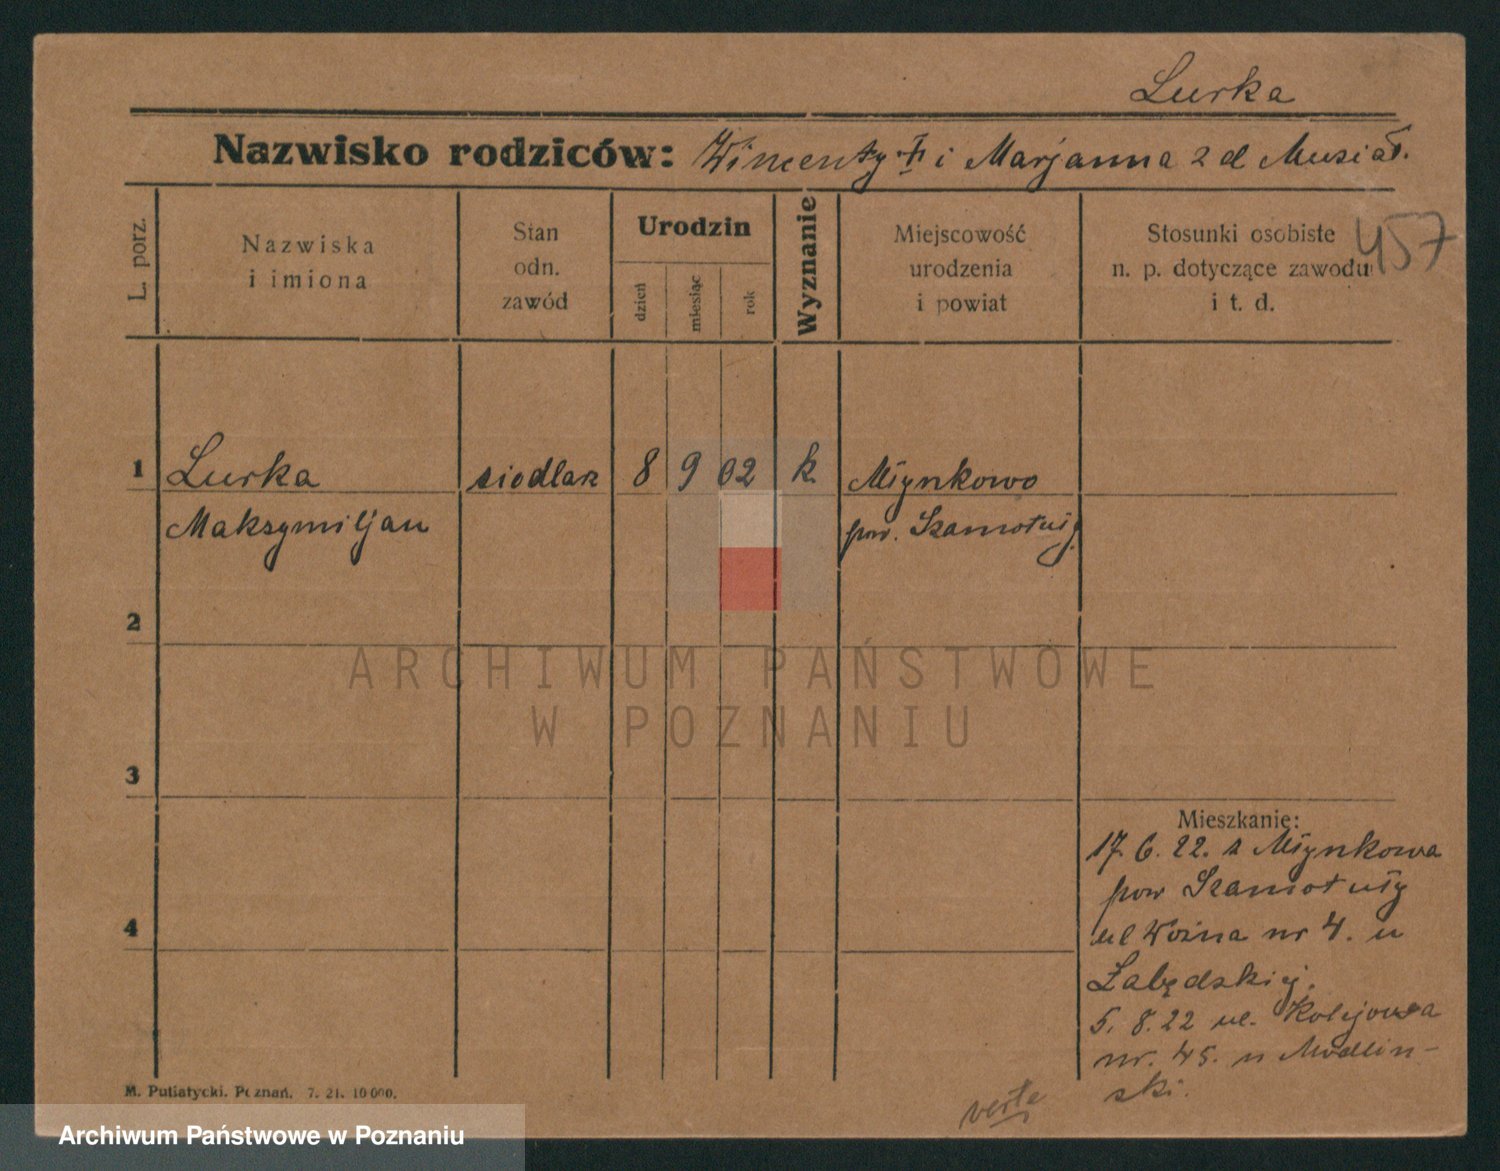 Lurka
Nazwisko rodziców: Wincenty † i Marjanna z d Musiał.
L. porz.
Nazwiska
i imiona
Stan
odn.
zawód
Urodzin
dzień
miesiąc
rok
Wyznanie
Miejscowość
urodzenia
i powiat
Stosunki osobiste
n. p. dotyczące zawodu
i t. d.
457
1 Lurka siodlarz 8 9 02 k. Młynkowo
Maksymiljan pow. Szamotuły
2
3
4
ARCHIWUM PAŃSTWOWE
W POZNANIU
Mieszkanie:
17. 6. 22. z Młynkowa
pow Szamotuły
ul Woźna nr 4. u
Łabędzkiej.
5. 8. 22 ul. Kolejowa
nr. 45. u Modlin-
ski.
verte
M. Putiatycki. Poznań. 7. 21. 10 000.
Archiwum Państwowe w Poznaniu